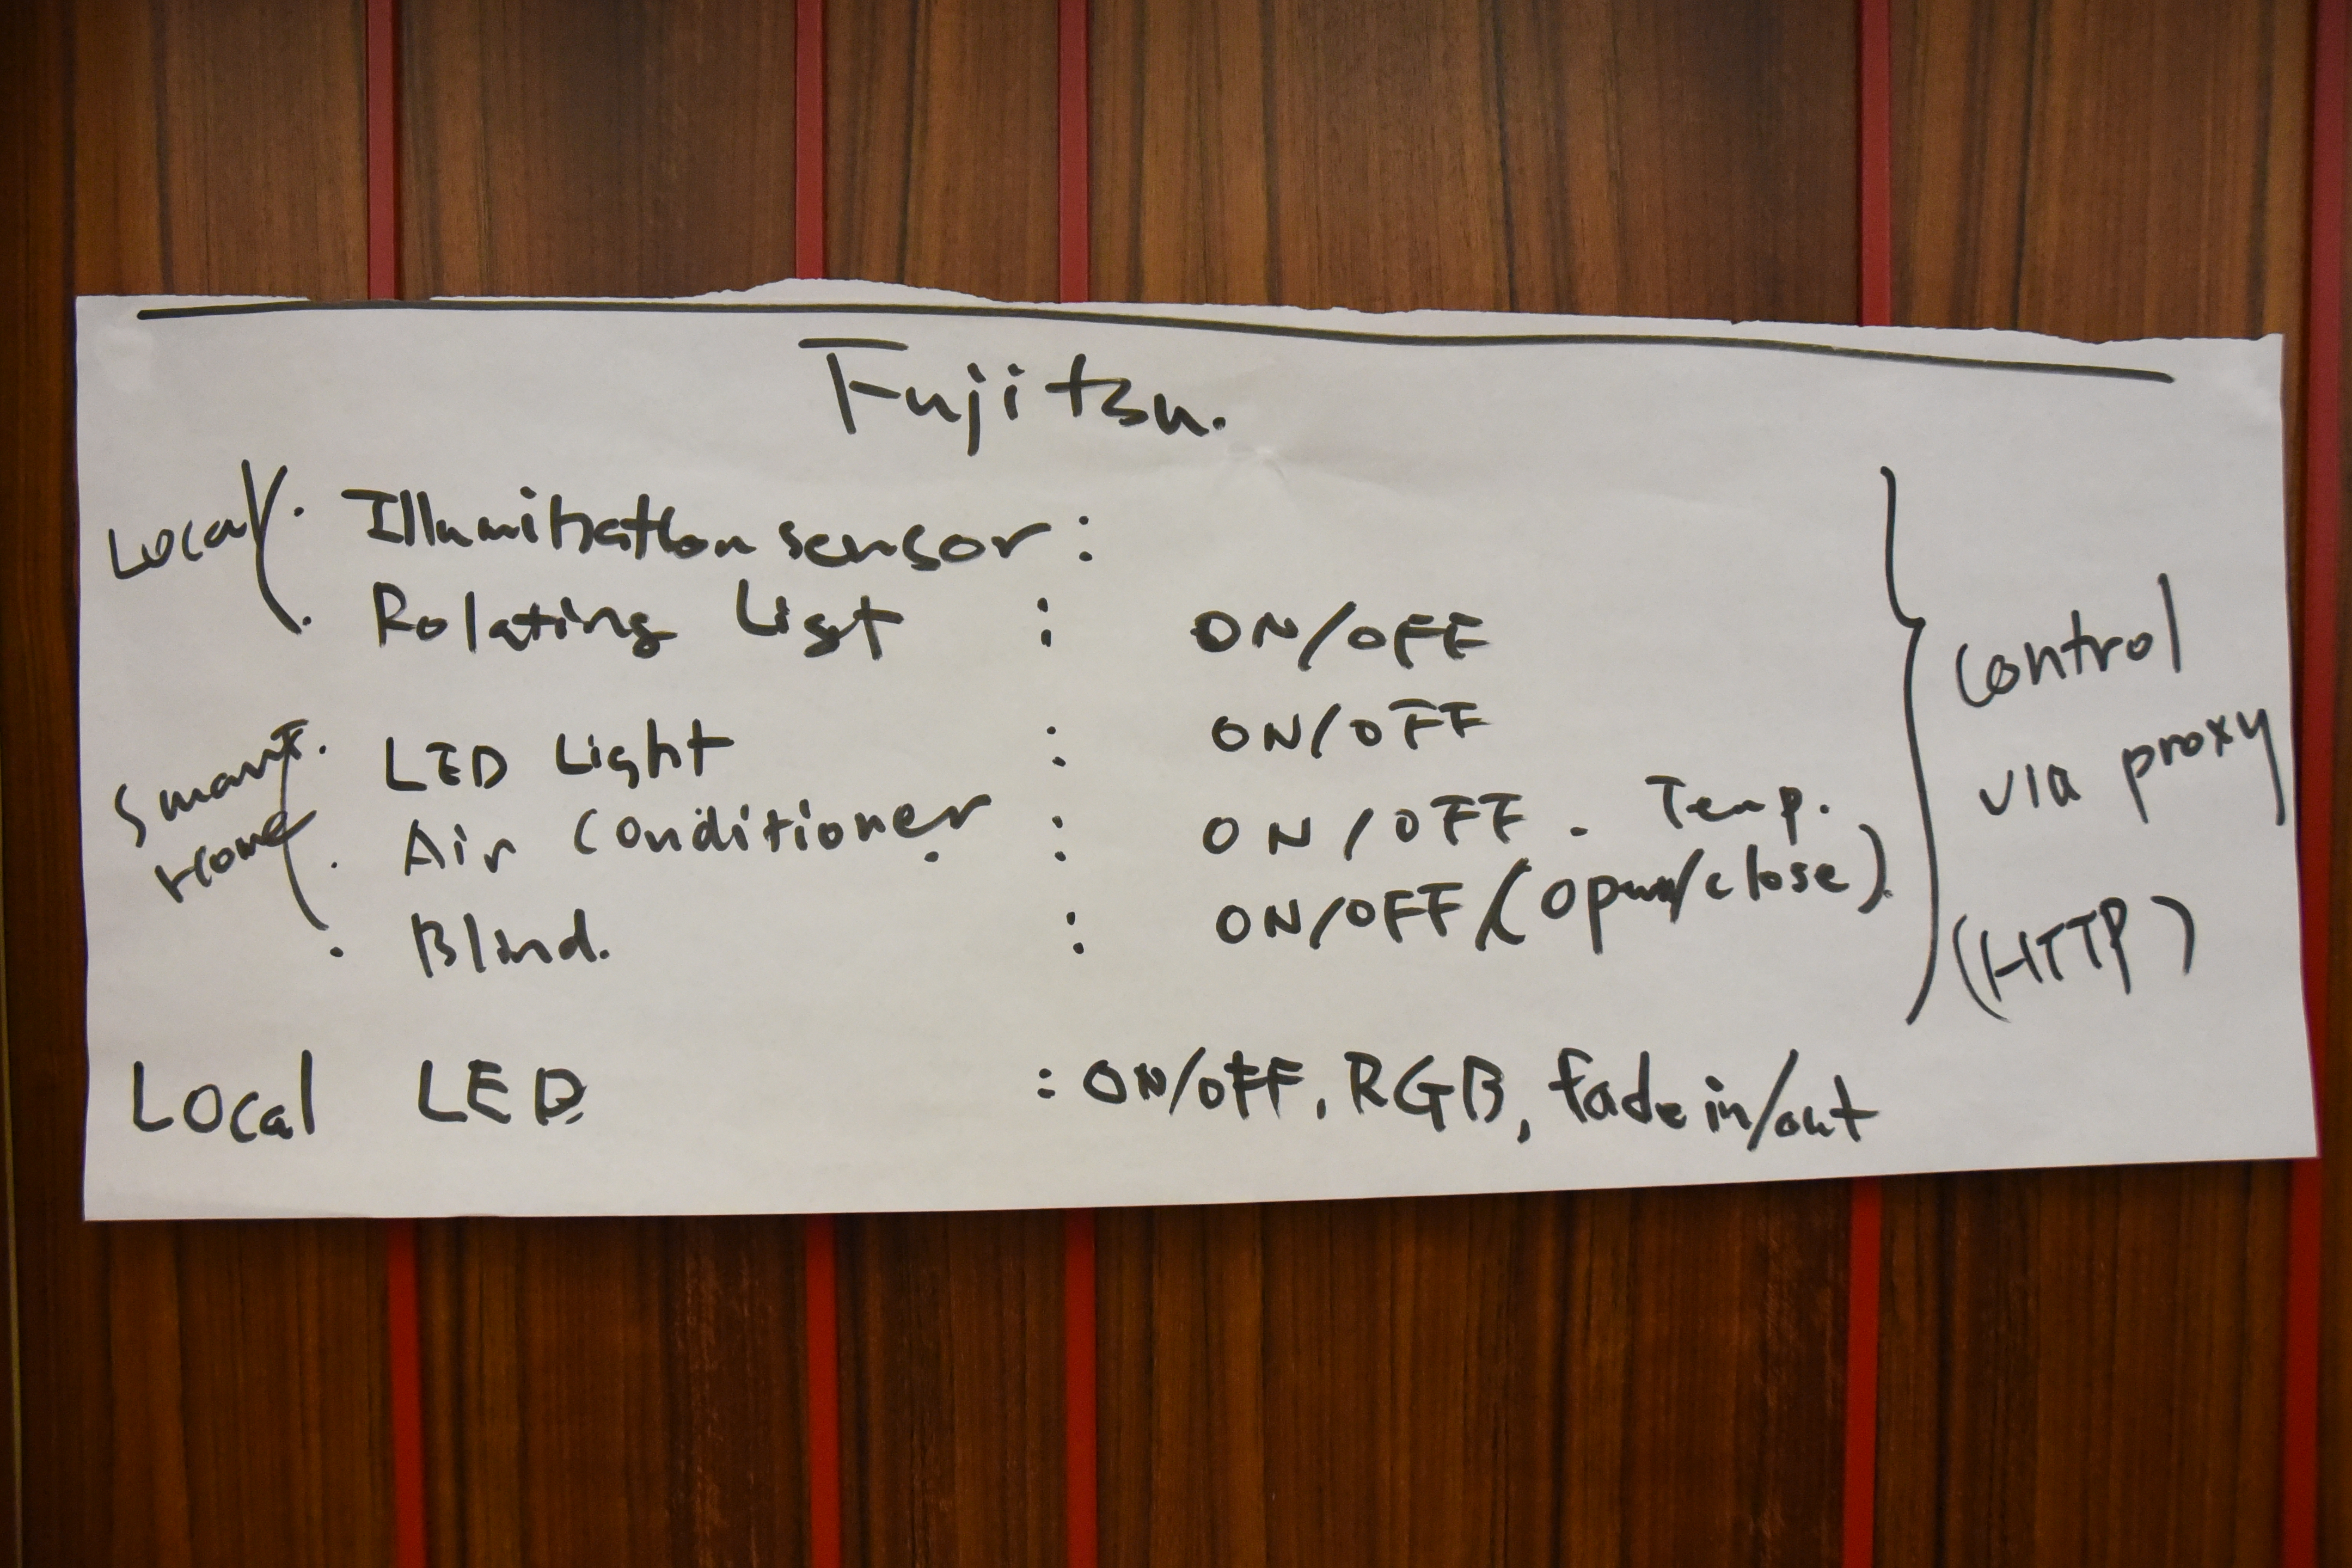 Fujitsu.
Local · Illumination sensor :
· Rotating Light : ON/OFF
Smart · LED Light : ON/OFF
Home · Air Conditioner : ON/OFF . Temp.
· Blind. : ON/OFF/(open/close)
Control
via proxy
(HTTP)
Local LED : ON/OFF, RGB, fade in/out